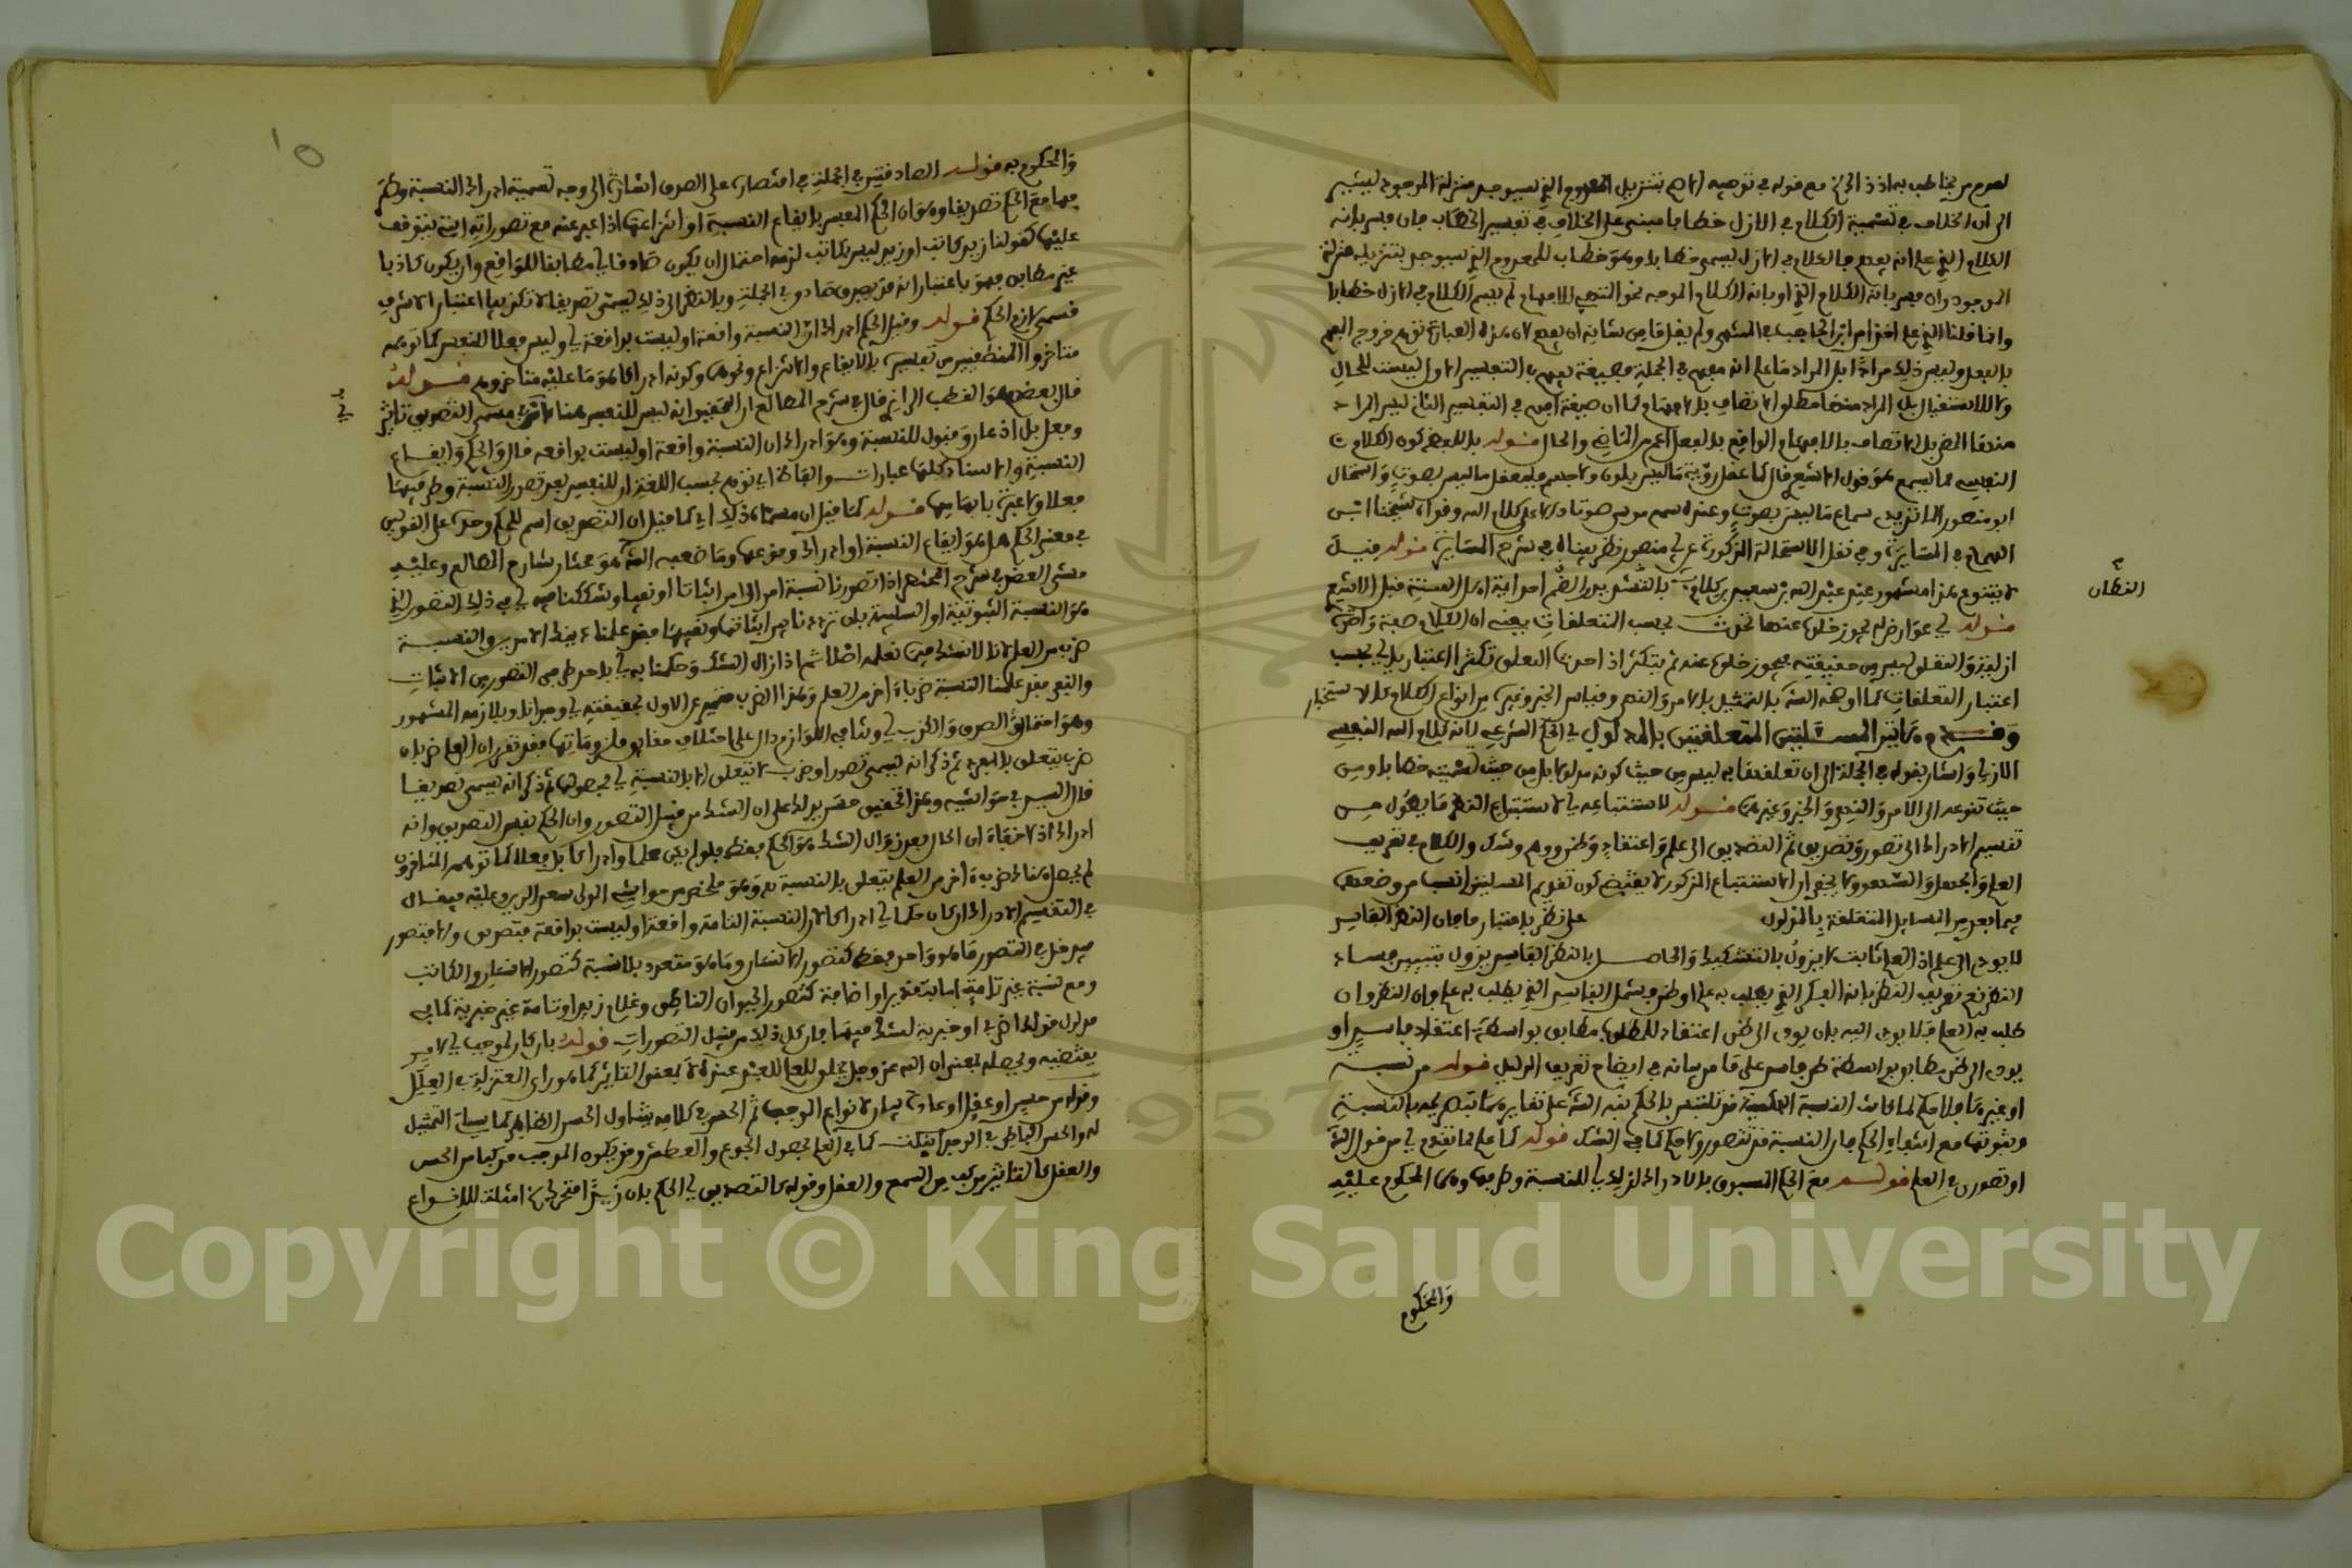 لعدم من يخاطب به اذ ذاك الخ مع قوله في توجيه الاصح بتنزيل المعدوم الذي سيوجد منزلة الموجود ليشير
الى ان الخلاف في تسمية الكلام في الازل خطابا مبني على الخلاف في تفسير الخطاب فان فسر بانه
الكلام الذي علم انه يفهم فالكلام في الازل يسمى خطابا وهو خطاب للمعدوم الذي سيوجد بتنزيله منزلة
الموجود وان فسر بانه الكلام الذي او بانه الكلام الموجه نحو المتهيئ للافهام لم يسم الكلام في الازل خطابا
وانما قلنا الذي علم اخذا من ابن الحاجب في المنتهى ولم يقل ما من شانه ان يفهم لان هذه العبارة توهم خروج الفهم
بالفعل وليس ذلك مرادا بل المراد ما علم انه مفهم في الجملة فصيغة يفهم في التفسير الاول ليست للحال
ولا للاستقبال بل المراد منها مطلق الاتصاف بالافهام كما ان صيغة افهم في التفسير الثاني ليس المراد
منها المضي بل الاتصاف بالافهام الواقع بالفعل اعم من الماضي والحال قوله باللفظ كون الكلام
النفسي مما يسمع هو قول الاشعري قال كما عقل رؤية ما ليس بلون ولا جسم فليعقل ما ليس بصوت واستحال
ابو منصور الماتريدي سماع ما ليس بصوت وعنده سمع موسى صوتا دالا على كلام الله وقوله شيخنا ابن
الهمام في المسايرة وفي نقل الاستحالة المذكورة عن ابي منصور نظر بيناه في شرح المسايرة قوله قيل
لا يتنوع هذا مشهور عن عبد الله بن سعيد بن كلاب بالتشديد والضم احد ايمة اهل السنة قبل الاشعري
القطان
قوله اي عوارض له يجوز خلوه عنها تحدث بحسب التعلقات يعني ان الكلام صفة واحدة
ازلية والتعلق ليس من حقيقته فيجوز خلوه عنه ثم يتكثر اذا حدث التعلق تكثرا اعتباريا اي بحسب
اعتبار التعلقات كما اوضحه الشارح بالتمثيل بالامر والنهي وقياس الخبر وغيره من انواع الكلام كالاستخبار
وقدم هاتين المسئلتين المتعلقتين بالمدلول اي الحكم الشرعي لانه كلام الله النفسي
الازلي واشار بقوله في الجملة الى ان تعلقهما به ليس من حيث كونه مدلولا بل من حيث تسميته خطابا ومن
حيث تنوعه الى الامر والنهي والخبر وغيرها قوله لاستتباعه اي لاستتباع النظر ما يطول من
تقسيم الادراك الى تصور وتصديق ثم التصديق الى علم واعتقاد وظن ووهم وشك والكلام في تعريف
العلم والجهل والسهو ولا يخفى ان الاستتباع المذكور لا يقتضي كون تقديم المسئلتين انسب من وضعهما
فيما بعد من المسايل المتعلقة بالمدلول على نظر باعتبار ما فان النظر الفاسد
لا يودي الى علم اذ العلم ثابت لا يزول بالتشكيك والحاصل بالنظر الفاسد يزول بتبيين فساد
النظر نعم تعريف النظر بانه الفكر الذي يطلب به علم او ظن يشمل الفاسد الذي يطلب به علم وان النظر وان
طلب به العلم قد لا يودي اليه بان يودي الى ظن اعتقاد للمطلوب مطابق بواسطة اعتقاد فاسد او
يودي الى ظن مطابق بواسطة ظن فاسد على ما مر بيانه في ايضاح تعريف الدليل قوله من نسبة
او غيرها فلا حكم لما كانت النسبة الحكمية قد تلتبس بالحكم نبه الشارح على تغايرهما بتصريحه بالنسبة
وثبوتها مع انتفاء الحكم فان النسبة قد تتصور ولا حكم كما في الشك قوله كما علم مما تقدم اي من قول الشارح
او تصوري في العلم قوله مع الحكم المسبوق بالادراك لذلك اي للنسبة وطرفيها وهما المحكوم عليه
والمحكوم
١٥
والمحكوم به قوله الصادقتين في الجملة في اقتصاره على الصدق اشارة الى وجه تسمية ادراك النسبة وطرفيها
فيها مع الحكم تصديقا وهو ان الحكم المفسر بايقاع النسبة او انتزاعها اذا عبر عنه مع تصوراته التي يتوقف
عليها كقولنا زيد كاتب او زيد ليس بكاتب لزمه احتمال ان يكون صادقا اي مطابقا للواقع وان يكون كاذبا
غير مطابق فهو باعتبار انه قد يصدق صادق في الجملة وبالنظر الى ذلك يسمى تصديقا لا تكذيبا اعتبارا لاشرف
قسمي لازم الحكم قوله وقيل الحكم ادراك ان النسبة واقعة او ليست بواقعة اي وليس فعلا للنفس كما توهمه
متاخروا المنطقيين من تفسيره بالايقاع والانتزاع ونحوهما وكونه ادراكا هو ما عليه متاخروهم قوله
قال بعضهم هو القطب الرازي قال في شرح المطالع التحقيق انه ليس للنفس هنا في مسمى التصديق تاثير
وفعل بل اذعان وقبول للنسبة وهو ادراك ان النسبة واقعة او ليست بواقعة قال والحكم وايقاع
النسبة والاسناد كلها عبارات والفاظ اي توهم بحسب اللغة ان للنفس بعد تصور النسبة وطرفيها
فعلا ولا عبرة بايهامها قوله كما قيل ان مسماه ذلك اي كما قيل ان التصديق اسم للحكم وحده على القولين
في معنى الحكم هل هو ايقاع النسبة او ادراك وقوعها وما ضعفه الشارح هو مختار شارح المطالع وعليه
مشى العضد في شرح المختصر اذا تصورنا نسبة امر الى امر اثباتا او نفيا وشككنا فيه اي في ذلك التصور الذي
هو النسبة الثبوتية او السلبية بان ترددنا بين اثباتها ونفيها فقد علمنا ذينك الامرين والنسبة
ضربا من العلم لانا لا نشك فيما نعلمه اصلا ثم اذا زال الشك وحكمنا به اي باحد طرفي التصور من الاثبات
والنفي فقد علمنا النسبة ضربا اخر من العلم وهذا الضرب متميز عن الاول بحقيقته اي وجدانا وبلازمه المشهور
وهو احتمال الصدق والكذب اي وتنافي اللوازم دال على اختلاف حقايق ملزوماتها فقد تقرر ان العلم ضربان
ضرب يتعلق بالمفرد ثم ذكر انه يسمى تصورا وضرب لا يتعلق الا بالنسبة اي بحصولها ثم ذكر انه يسمى تصديقا
قال السيد في حواشيه وهذا تحقيق حسن يدلك على ان الشك من قبيل التصور وان الحكم نفس التصديق وانه
ادراك اذ لا خفاء ان الحال بعد زوال الشك هو الحكم فقط فلو لم يكن علما وادراكا بل فعلا كما توهمه المتاخرون
لم يحصل هناك ضرب اخر من العلم يتعلق بالنسبة نعم وهو ملخص من حواشي المولى سعد الدين وعليه فيقال
في التقسيم الادراك ان كان حكما اي ادراكا لان النسبة التامة واقعة او ليست بواقعة فتصديق والا فتصور
فيدخل في التصور ما هو واحد فقط كتصور الانسان وما هو متعدد بلا نسبة كتصور الانسان والكاتب
ومع نسبة غير تامة اما تقييدية او اضافية كتصور الحيوان الناطق وغلام زيد او تامة غير خبرية كما في
مدلول قولك اضرب او خبرية لشك فيها فان كل ذلك من قبيل التصورات قوله بان كان لموجب اي لامر
يقتضيه ويحصله بمعنى ان الله عز وجل يخلق العلم للعبد عنده لا بمعنى التاثير كما هو راي المعتزلة في العلل
وقوله من حس او عقل او عادة بيان لانواع الموجب ثم الحس في كلامه يتناول الحس الظاهر كما سياتي التمثيل
له والحس الباطن في الوجدانيات كما في العلم بحصول الجوع والعطش وقد يكون الموجب مركبا من الحس
والعقل كالتواتر مركب من السمع والعقل وقوله كالتصديق اي الحكم بان زيدا متحرك الخ امثلة للانواع
Copyright © King Saud University